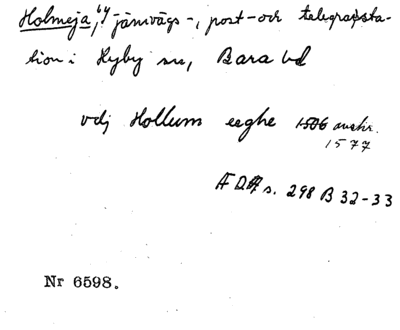 Holmeja, by, järnvägs-, post- och telegrafsta-
tion i Hyby sn, Bara hd
vdj Hollum
1506 avskr.
1577
s. 298 B 32-33
Nr 6598.